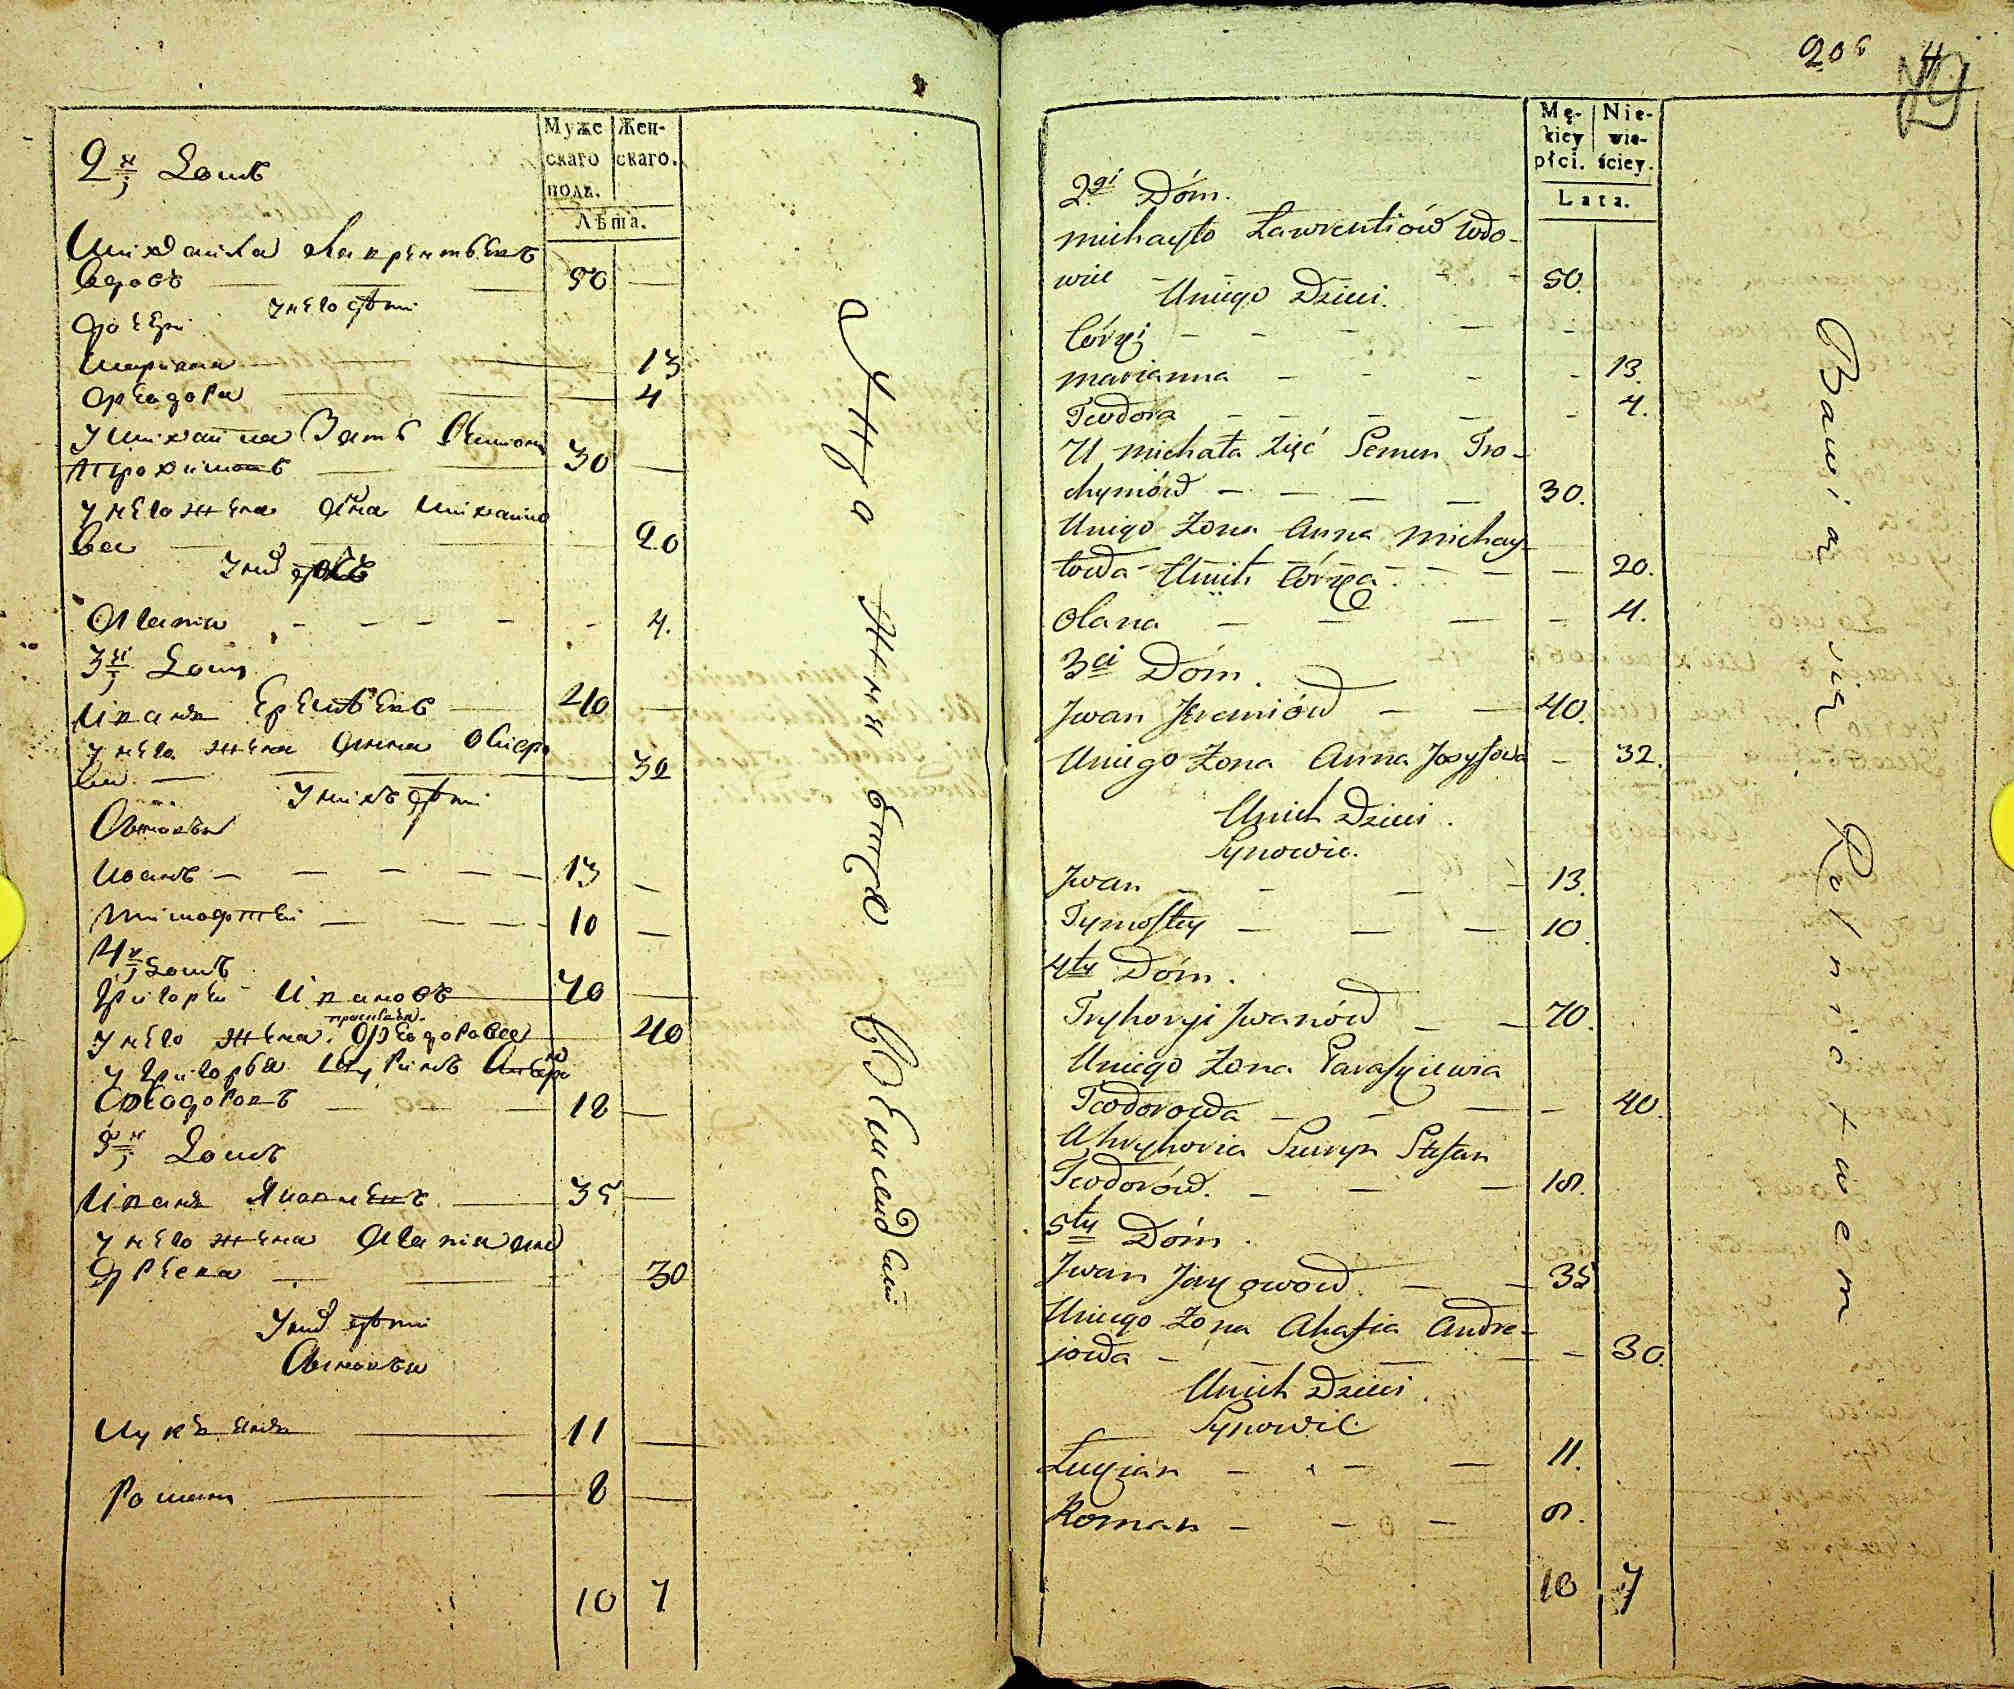 2й Домъ
Муже
скаго
пола.
Жен-
скаго.
Лѣта.
Михайла Лаврентьевъ
вдовъ — — — 50 —
У него дѣти
дочери
Марiана — — 13
Феодора — — 4
У Михайла Зять
Трохимовъ — — 30 —
У него жена Анна Михайло
ва — — 20
У них
4.
3й Домъ
Иванъ Еремѣевъ — 40 —
У него жена Анна
ва — — — 32
У них дѣти
Сыновья
Иванъ — — — — — 13 —
Тимофтей — — — — 10 —
4й Домъ
Григорей Ивановъ — 70 —
У него жена Феодорова — 40
У Григорья Шуринъ
Феодоровъ — — 18 —
5й Домъ
Иванъ Яковлевъ — 35 —
У него жена
— — 30
У них дѣти
Сыновья
Лукъянъ — 11 —
Романъ — 8 —
10 7
20
4
Mę-
kiey
płci.
Nie-
wie-
ściey.
Lata.
2gi Dóm.
Michayło Ławrentiów Wdo-
wiec — 50.
Uniego Dzieci.
Córki — — — — —
Marianna — — — — 13.
Teodora — — — — — 4.
U Michała Zięć Semen Tro-
chymów — — — — 30.
Uniego Żona Anna Michay-
łowa — Unich Córka — — — 20.
Olana — — — — 4.
3ci Dóm.
Jwan Jeremiów — — 40.
Uniego Żona Anna Jozyfowa — 32.
Unich Dzieci.
Synowie.
Jwan — — — — 13.
Tymoftey — — — 10.
4ty Dóm.
Hryhoryi Jwanów — — 70.
Uniego Żona Paraskiewia
Teodorowa — — — — 40.
Uhryhoria Szuryn Stefan
Teodorów. — — — 18.
5ty Dóm.
Jwan Jakowow. — — 35
Uniego Żona Ahafia Andre-
jowa — — — — — 30.
Unich Dzieci.
Synowie
Łukjan — — — 11.
Roman — — — 8.
10 7
Bawią się Rolnictwem